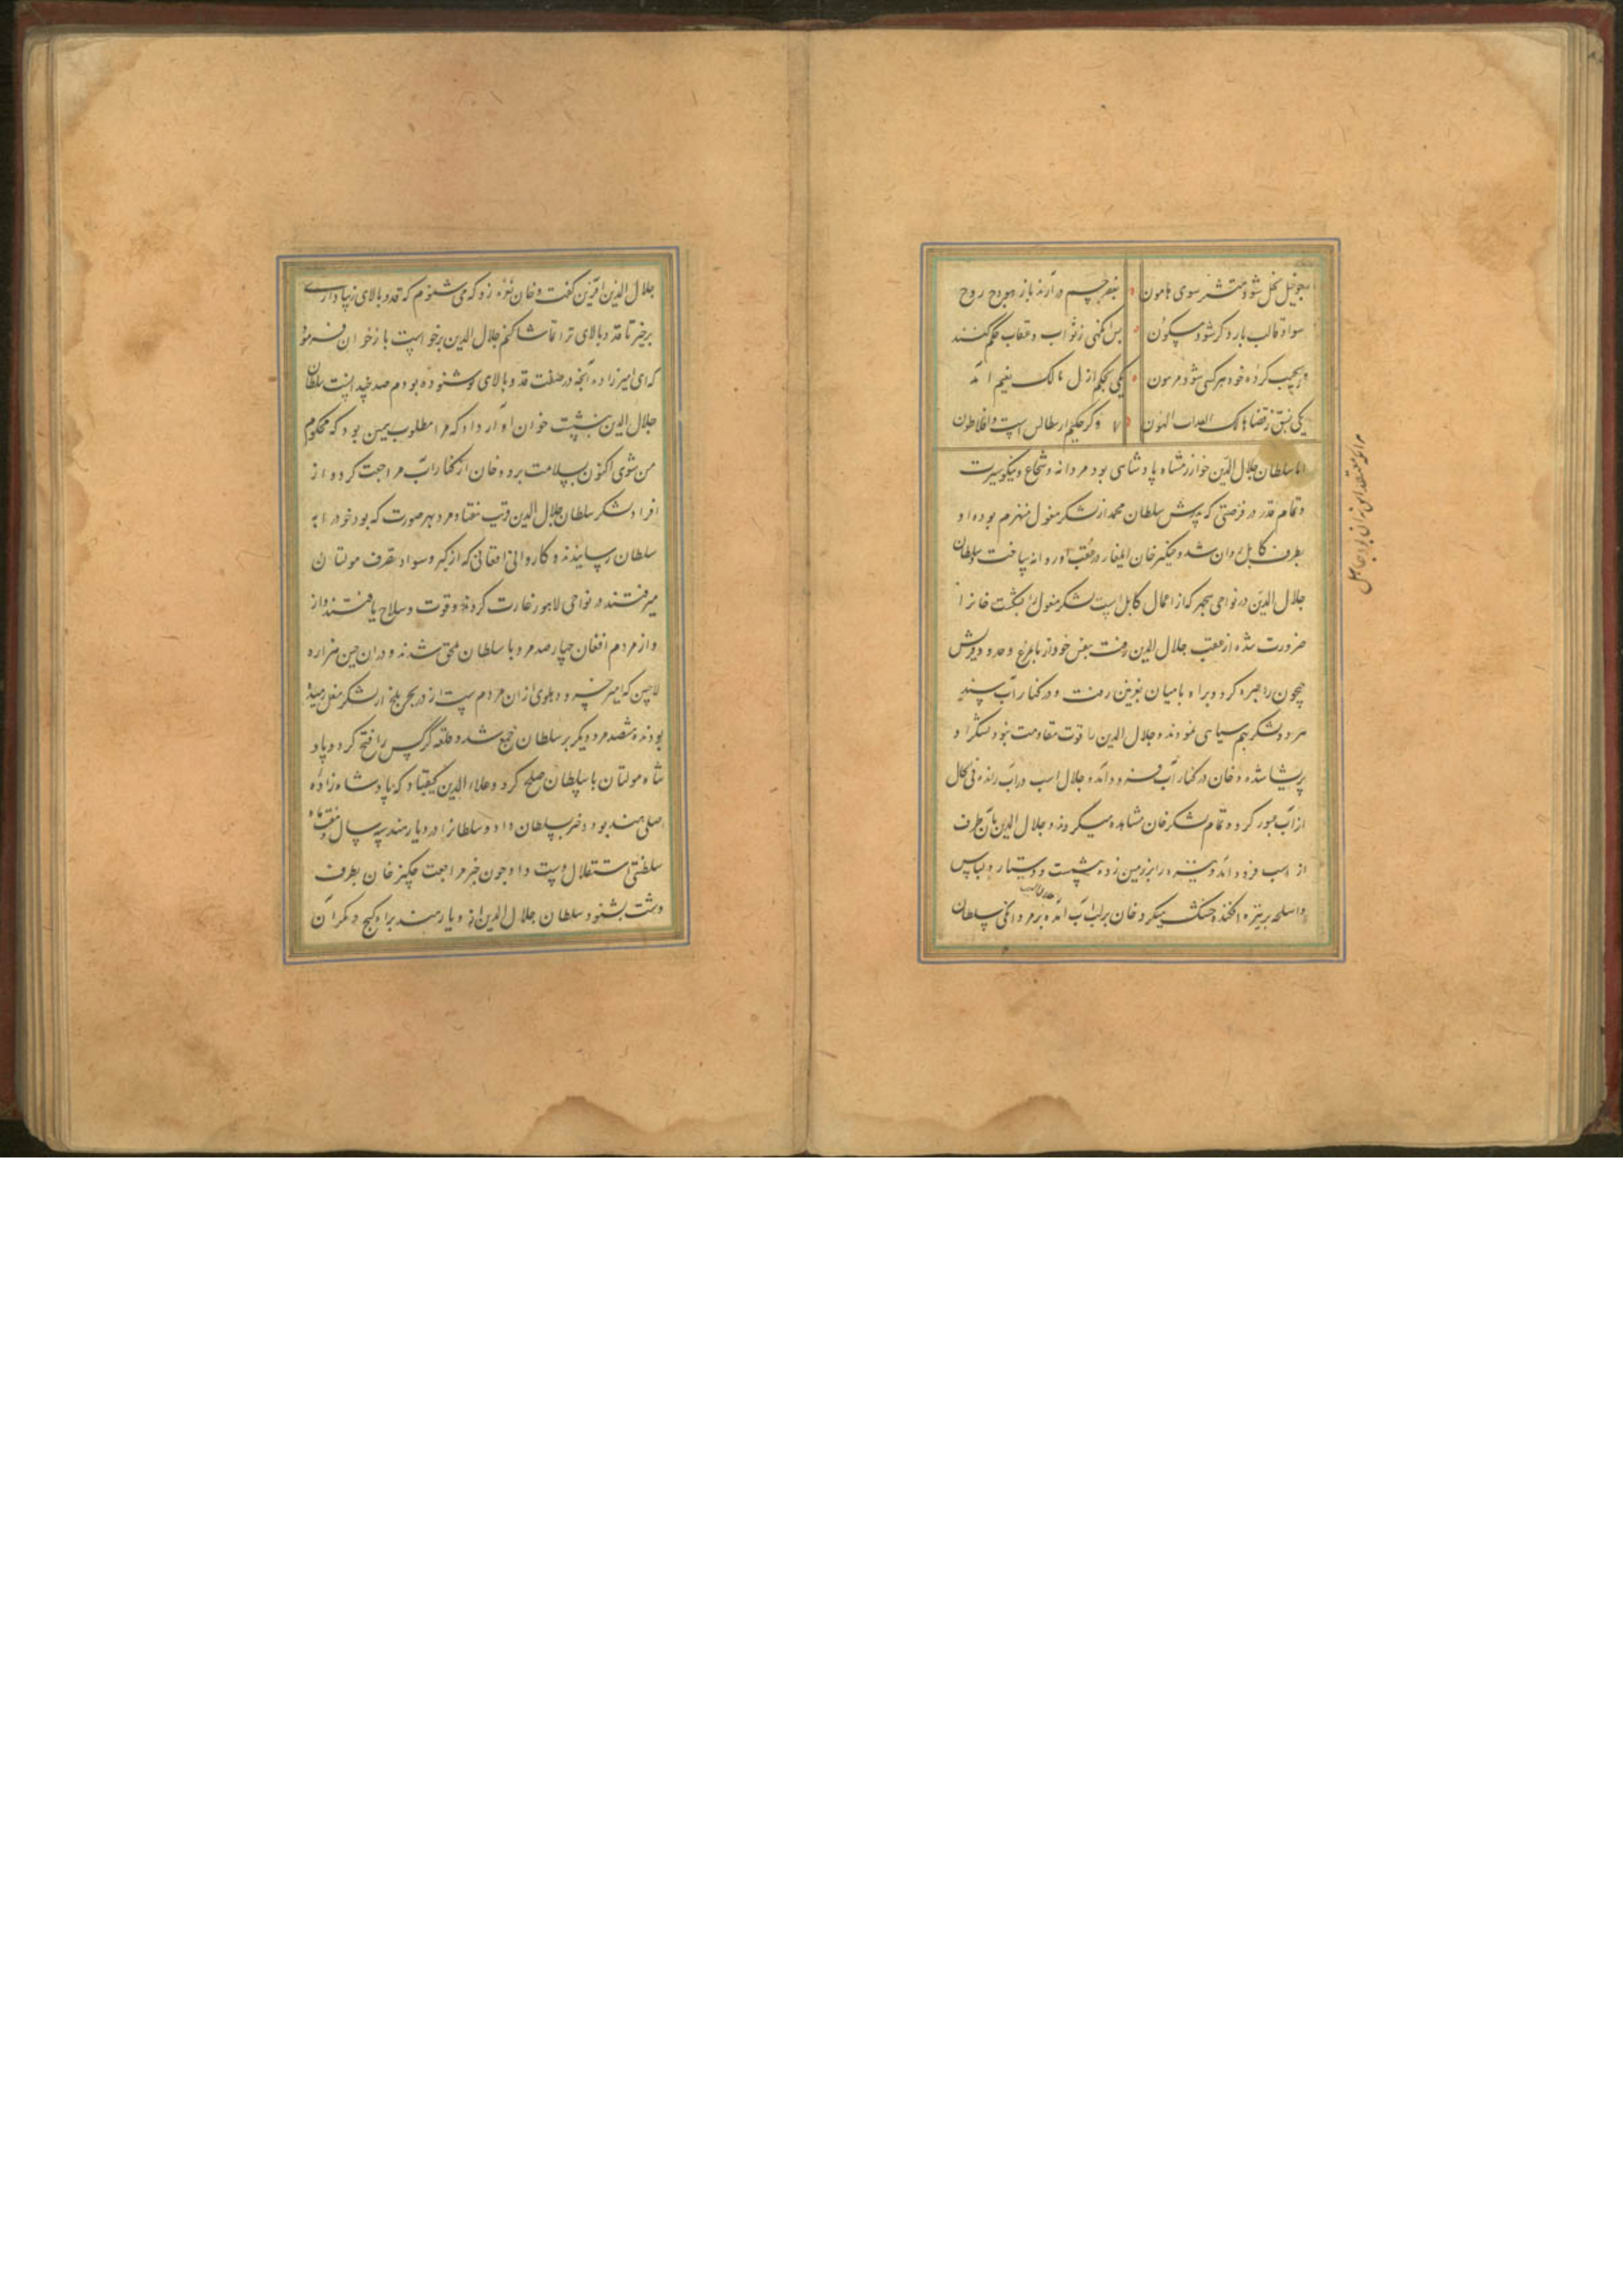 چو خیل نحل شود منتشر سوی هامون
بقعر جسم در آرند باز هودج روح
سواد قالب بار دگر شود مسکون
پس آنگهی ز ثواب و عقاب حکم کنند
کرده خود هر کسی شود مرهون
یکی بحکم ازل مالک نعیم آمد
یکی ز قضا هالک العذاب الهون
و گر حکیم ارسطالس است و افلاطون
اما سلطان جلال الدین خوارزمشاه پادشاهی بود مردانه و شجاع و نیکو سیرت
و تمام قدر در فرصتی که پدرش سلطان محمد از لشکر مغول منهزم بود او
بطرف کابل روان شد و چنگیز خان ایلغار در عقب او روانه ساخت سلطان
جلال الدین در نواحی پنجهر که از اعمال کابل است لشکر مغول را بشکست خانرا
ضرورت شده از عقب جلال الدین رفت بنفس خود از
جیحون را عبره کرد و براه بامیان بغزنین رفت و در کنار آب سند
هر دو لشکر بهم سیاهی نمودند و جلال الدین را قوت مقاومت نبود لشکر او
پریشان شده و خان در کنار آب فرود آمد و جلال اسب در آب رانده فی الحال
از آب عبور کرد و تمام لشکر خان مشاهده میکردند و جلال الدین بآن طرف
از اسب فرود آمد و نیزه را بر زمین زده بنشست و دستار و لباس
و اسلحه بر نیزه افکنده خشک میکرد خان بر لب آب آمده بر مردانگی سلطان
جلال الدین آفرین گفت و خان نعره زد که می شنوم که قد و بالای زیبا داری
برخیز تا قد و بالای ترا تماشا کنم جلال الدین برخواست باز خان فرمود
که ای امیر زاده آنچه در صفت قد و بالای تو شنوده بودم صد چندانست سلطان
جلال الدین بنشست خان آواز داد که مرا مطلوب همین بود که محکوم
من شوی اکنون بسلامت برو و خان از کنار آب مراجعت کرد و از
افراد لشکر سلطان جلال الدین قریب هفتاد مرد بهر صورت که بود خود را به
سلطان رسانیدند و کاروانی افغانی که از کبر و سواد بطرف مولتان
میرفتند در نواحی لاهور غارت کردند و قوت و سلاح یافتند و از
و از مردم افغان چهار صد مرد با سلطان ملحق شدند و در آن حین هزاره
لاچین که امیر خسرو دهلوی از آن مردم است از بلخ از لشکر مغل
بودند هفتصد مرد دیگر بر سلطان جمع شد و قلعه را فتح کرد و پاد
شاه مولتان با سلطان صلح کرد و علاء الدین کیقباد که پادشاه زاده
اصلی هند بود دختر بسلطان داد و سلطانرا در دیار هند سه سال و هفت ماه
سلطنتی باستقلال دست داد و چون خبر مراجعت چنگیز خان بطرف
دشت بشنود سلطان جلال الدین از دیار هند براه کیج و مکران